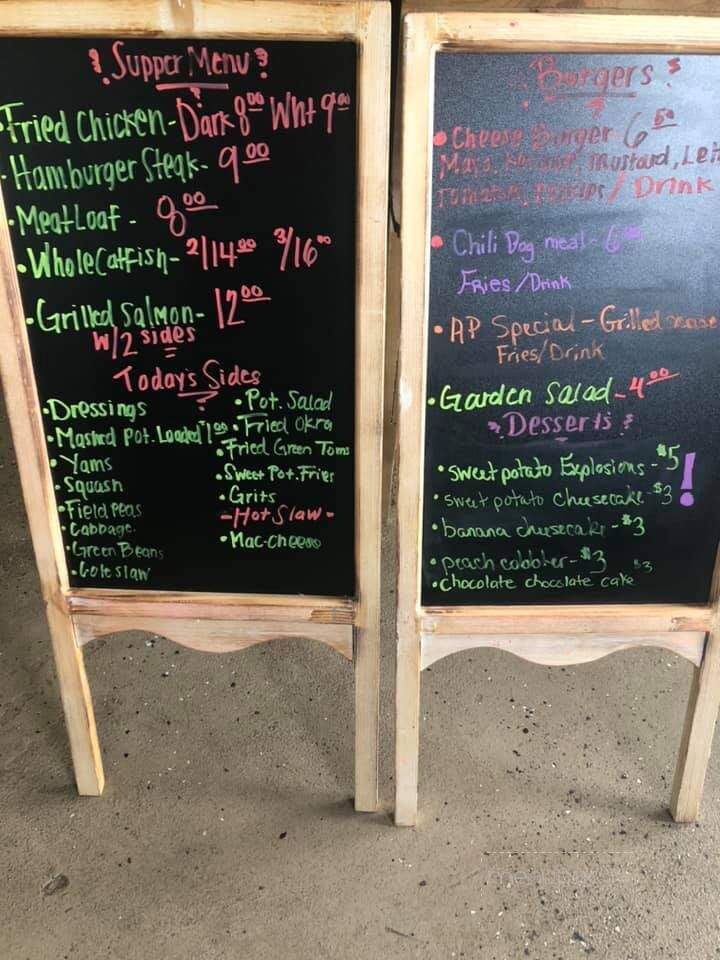 Supper Menu
Fried Chicken - Dark 8⁰⁰ Wht 9⁰⁰
• Hamburger Steak - 9⁰⁰
• MeatLoaf - 8⁰⁰
• Whole Catfish - 2/14⁰⁰ 3/16⁰⁰
• Grilled Salmon - 12⁰⁰
w/2 sides
Today's Sides
• Dressings
• Mashed Pot. Loaded 1⁰⁰
• Yams
• Squash
• Field Peas
• Cabbage
• Green Beans
• Cole slaw
• Pot. Salad
• Fried Okra
• Fried Green Toms
• Sweet Pot. Fries
• Grits
- Hot Slaw -
• Mac-cheese
Burgers
• Cheese Burger 6⁵⁰
Mayo, Mustard, Let
Tomatoes, / Drink
• Chili Dog meal - 6
Fries / Drink
• AP Special - Grilled
Fries/Drink
• Garden Salad - 4⁰⁰
Desserts
• sweet potato Explosions - $5!
• sweet potato cheesecake - $3
• banana cheesecake - $3
• peach cobbler - $3
• chocolate chocolate cake $3